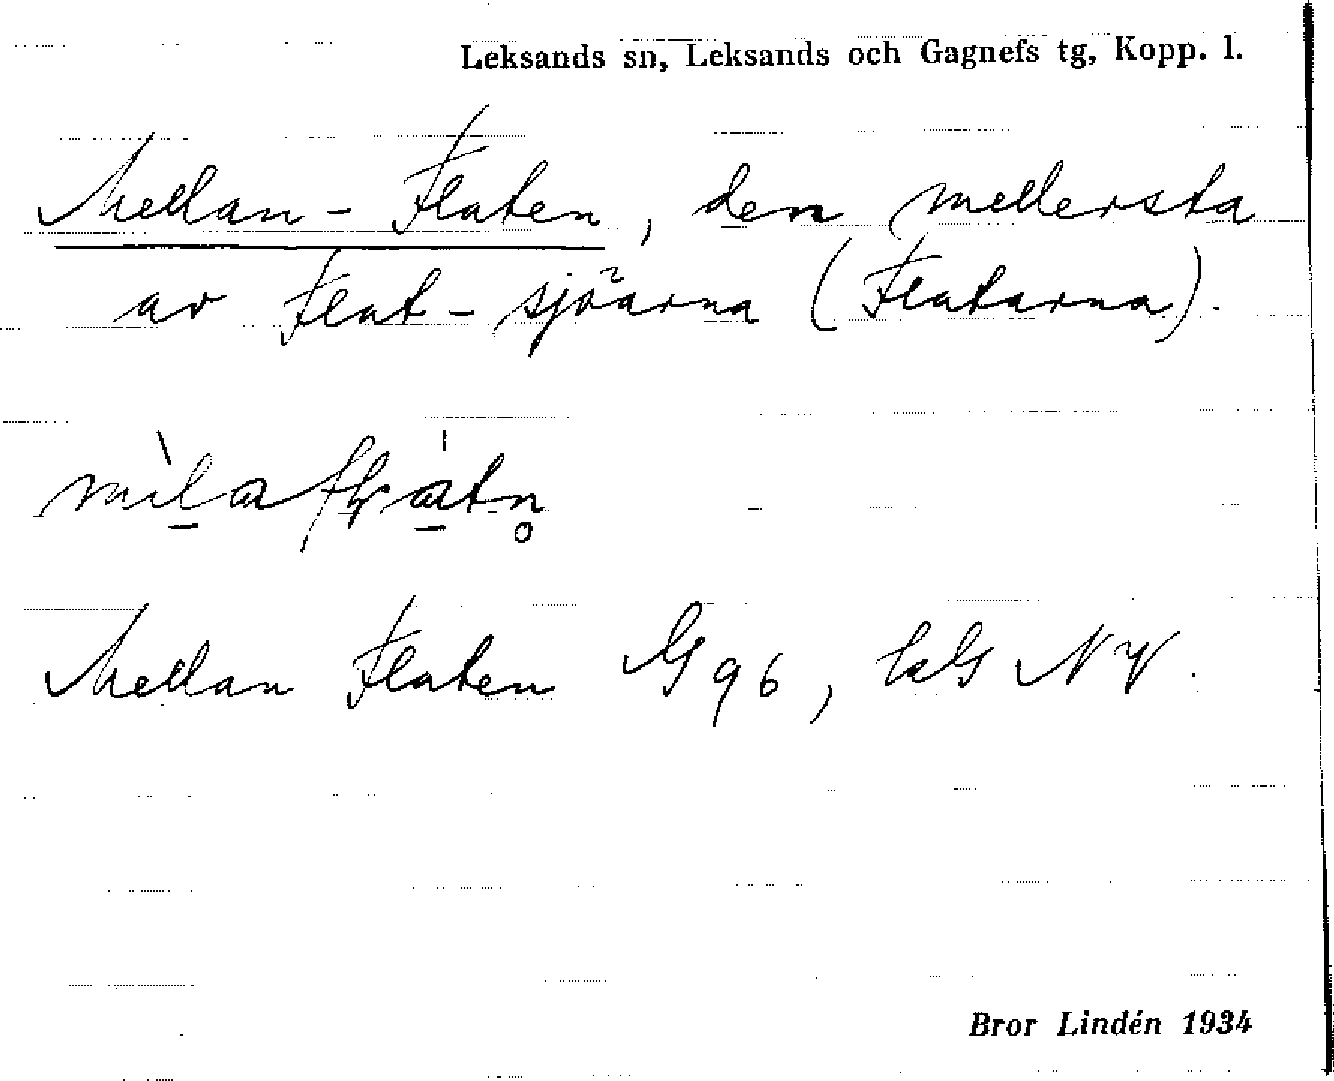 Leksands sn, Leksands och Gagnefs tg, Kopp. l.
Mellan-Flaten, den mellersta
av Flat-sjöarna (Flatarna).
Mellan Flaten G 96, bl G NV.
Bror Lindén 1934